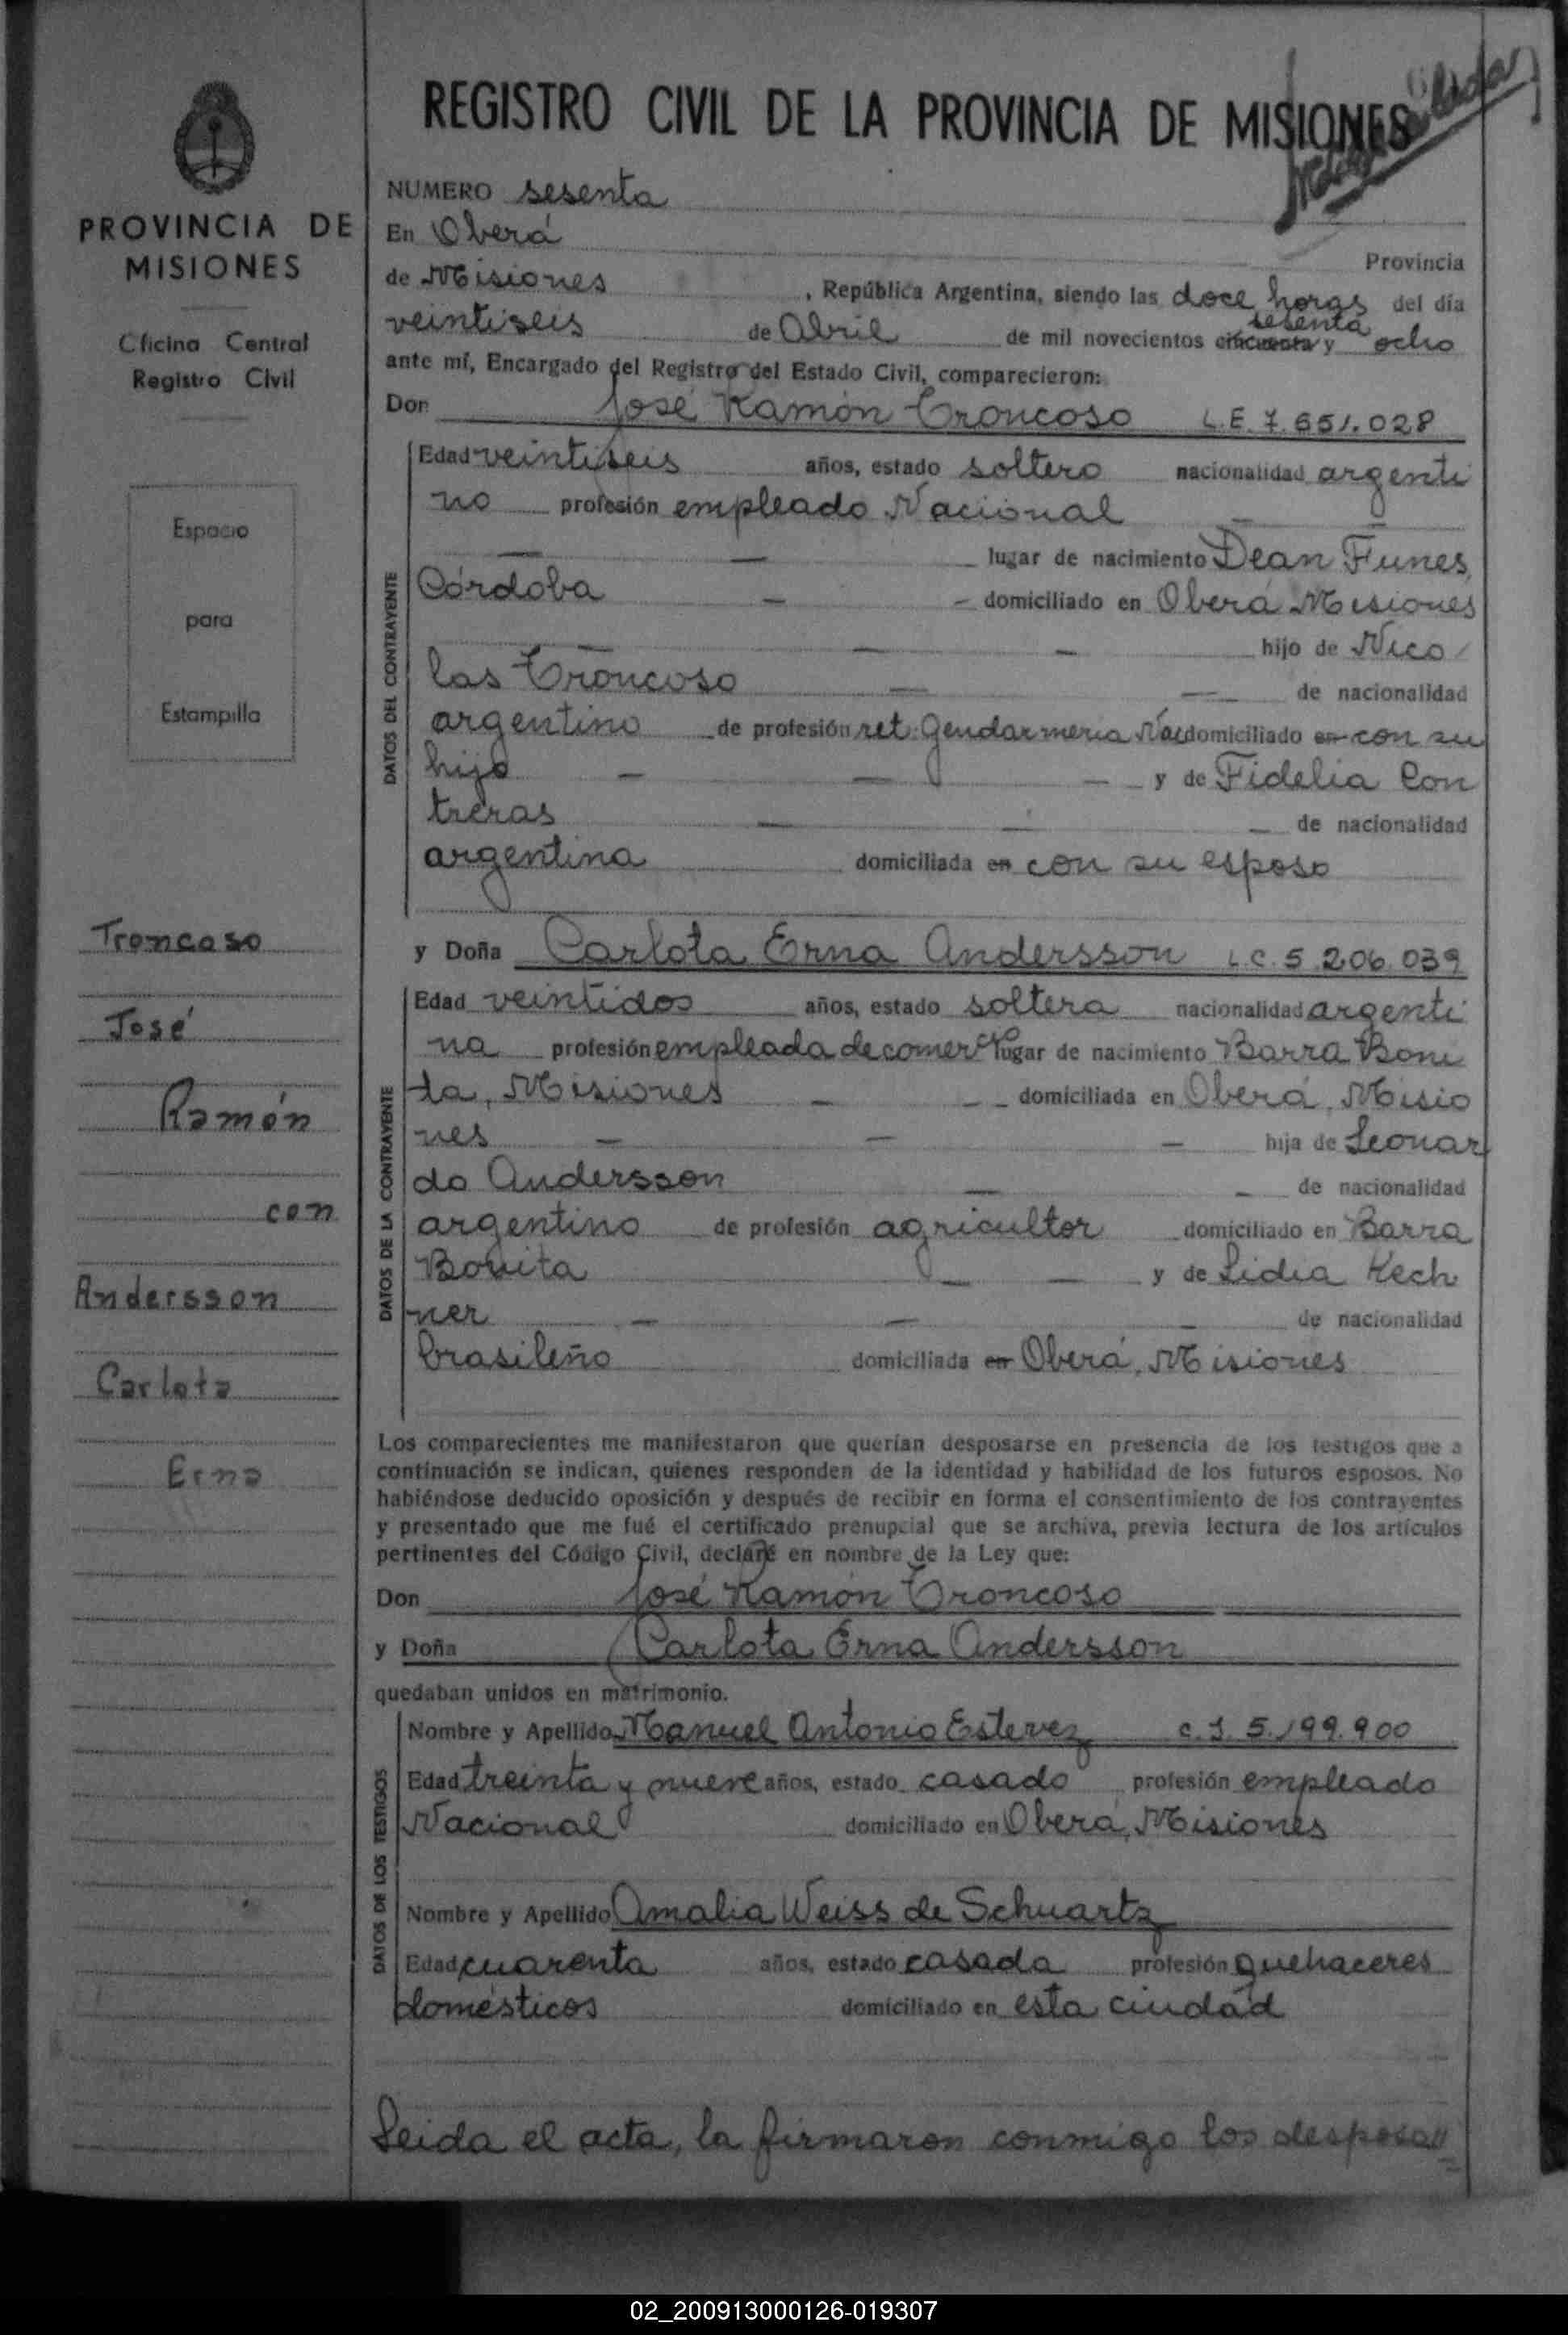 REGISTRO CIVIL DE LA PROVINCIA DE MISIONES
PROVINCIA DE
MISIONES
Oficina Central
Registro Civil
Espacio
para
Estampilla
Troncoso
José
Ramón
con
Andersson
Carlota
Erna
NUMERO sesenta
En Oberá
Provincia
de Misiones, República Argentina, siendo las doce horas del día
veintiseis de Abril de mil novecientos cincuenta sesenta y ocho
ante mí, Encargado del Registro del Estado Civil, comparecieron:
Don José Ramón Troncoso L.E. 7.651.028
DATOS DEL CONTRAYENTE
Edad veintiseis años, estado soltero nacionalidad argenti
no profesión empleado Nacional —
— — lugar de nacimiento Dean Funes,
Córdoba — - domiciliado en Oberá Misiones
— — hijo de Nico
las Troncoso — — de nacionalidad
argentino de profesión ret. Gendarmeria Nac domiciliado en con su
hijo — — — y de Fidelia Con
treras — — — de nacionalidad
argentina domiciliada en con su esposo
y Doña Carlota Erna Andersson L.C. 5.206.039
DATOS DE LA CONTRAYENTE
Edad veintidos años, estado soltera nacionalidad argenti
na profesión empleada de comercio lugar de nacimiento Barra Boni
ta, Misiones — — domiciliada en Oberá, Misio
nes — — — hija de Leonar
do Andersson — — de nacionalidad
argentino de profesión agricultor domiciliado en Barra
Bonita — — y de Lidia Kech
ner — — — de nacionalidad
brasileño domiciliada en Oberá, Misiones
Los comparecientes me manifestaron que querían desposarse en presencia de los testigos que a
continuación se indican, quienes responden de la identidad y habilidad de los futuros esposos. No
habiéndose deducido oposición y después de recibir en forma el consentimiento de los contrayentes
y presentado que me fué el certificado prenupcial que se archiva, previa lectura de los artículos
pertinentes del Código Civil, declaré en nombre de la Ley que:
Don José Ramón Troncoso
y Doña Carlota Erna Andersson
quedaban unidos en matrimonio.
DATOS DE LOS TESTIGOS
Nombre y Apellido Manuel Antonio Estevez C.I. 5.199.900
Edad treinta y nueve años, estado casado profesión empleado
Nacional domiciliado en Oberá, Misiones
Nombre y Apellido Amalia Weiss de Schuartz
Edad cuarenta años, estado casada profesión quehaceres
domésticos domiciliado en esta ciudad
Leida el acta, la firmaron conmigo los desposa
02_200913000126-019307